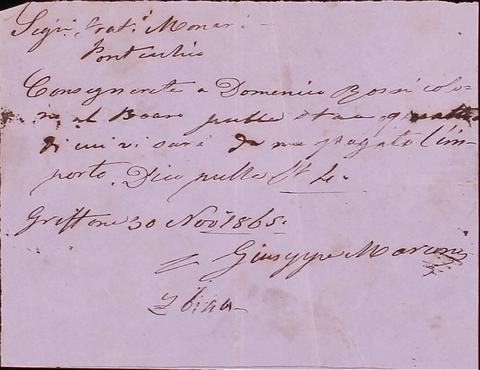 Sigri. Frati. Monari
Pontecchio
Consegnerete a Domenico Rossi colo=
no al Boaro pulla staa quatro
di cui vi sarà da me pagato l'im=
porto. Dico pulla St. 4.
Griffone 30 Nove. 1865.
Giuseppe Marconi